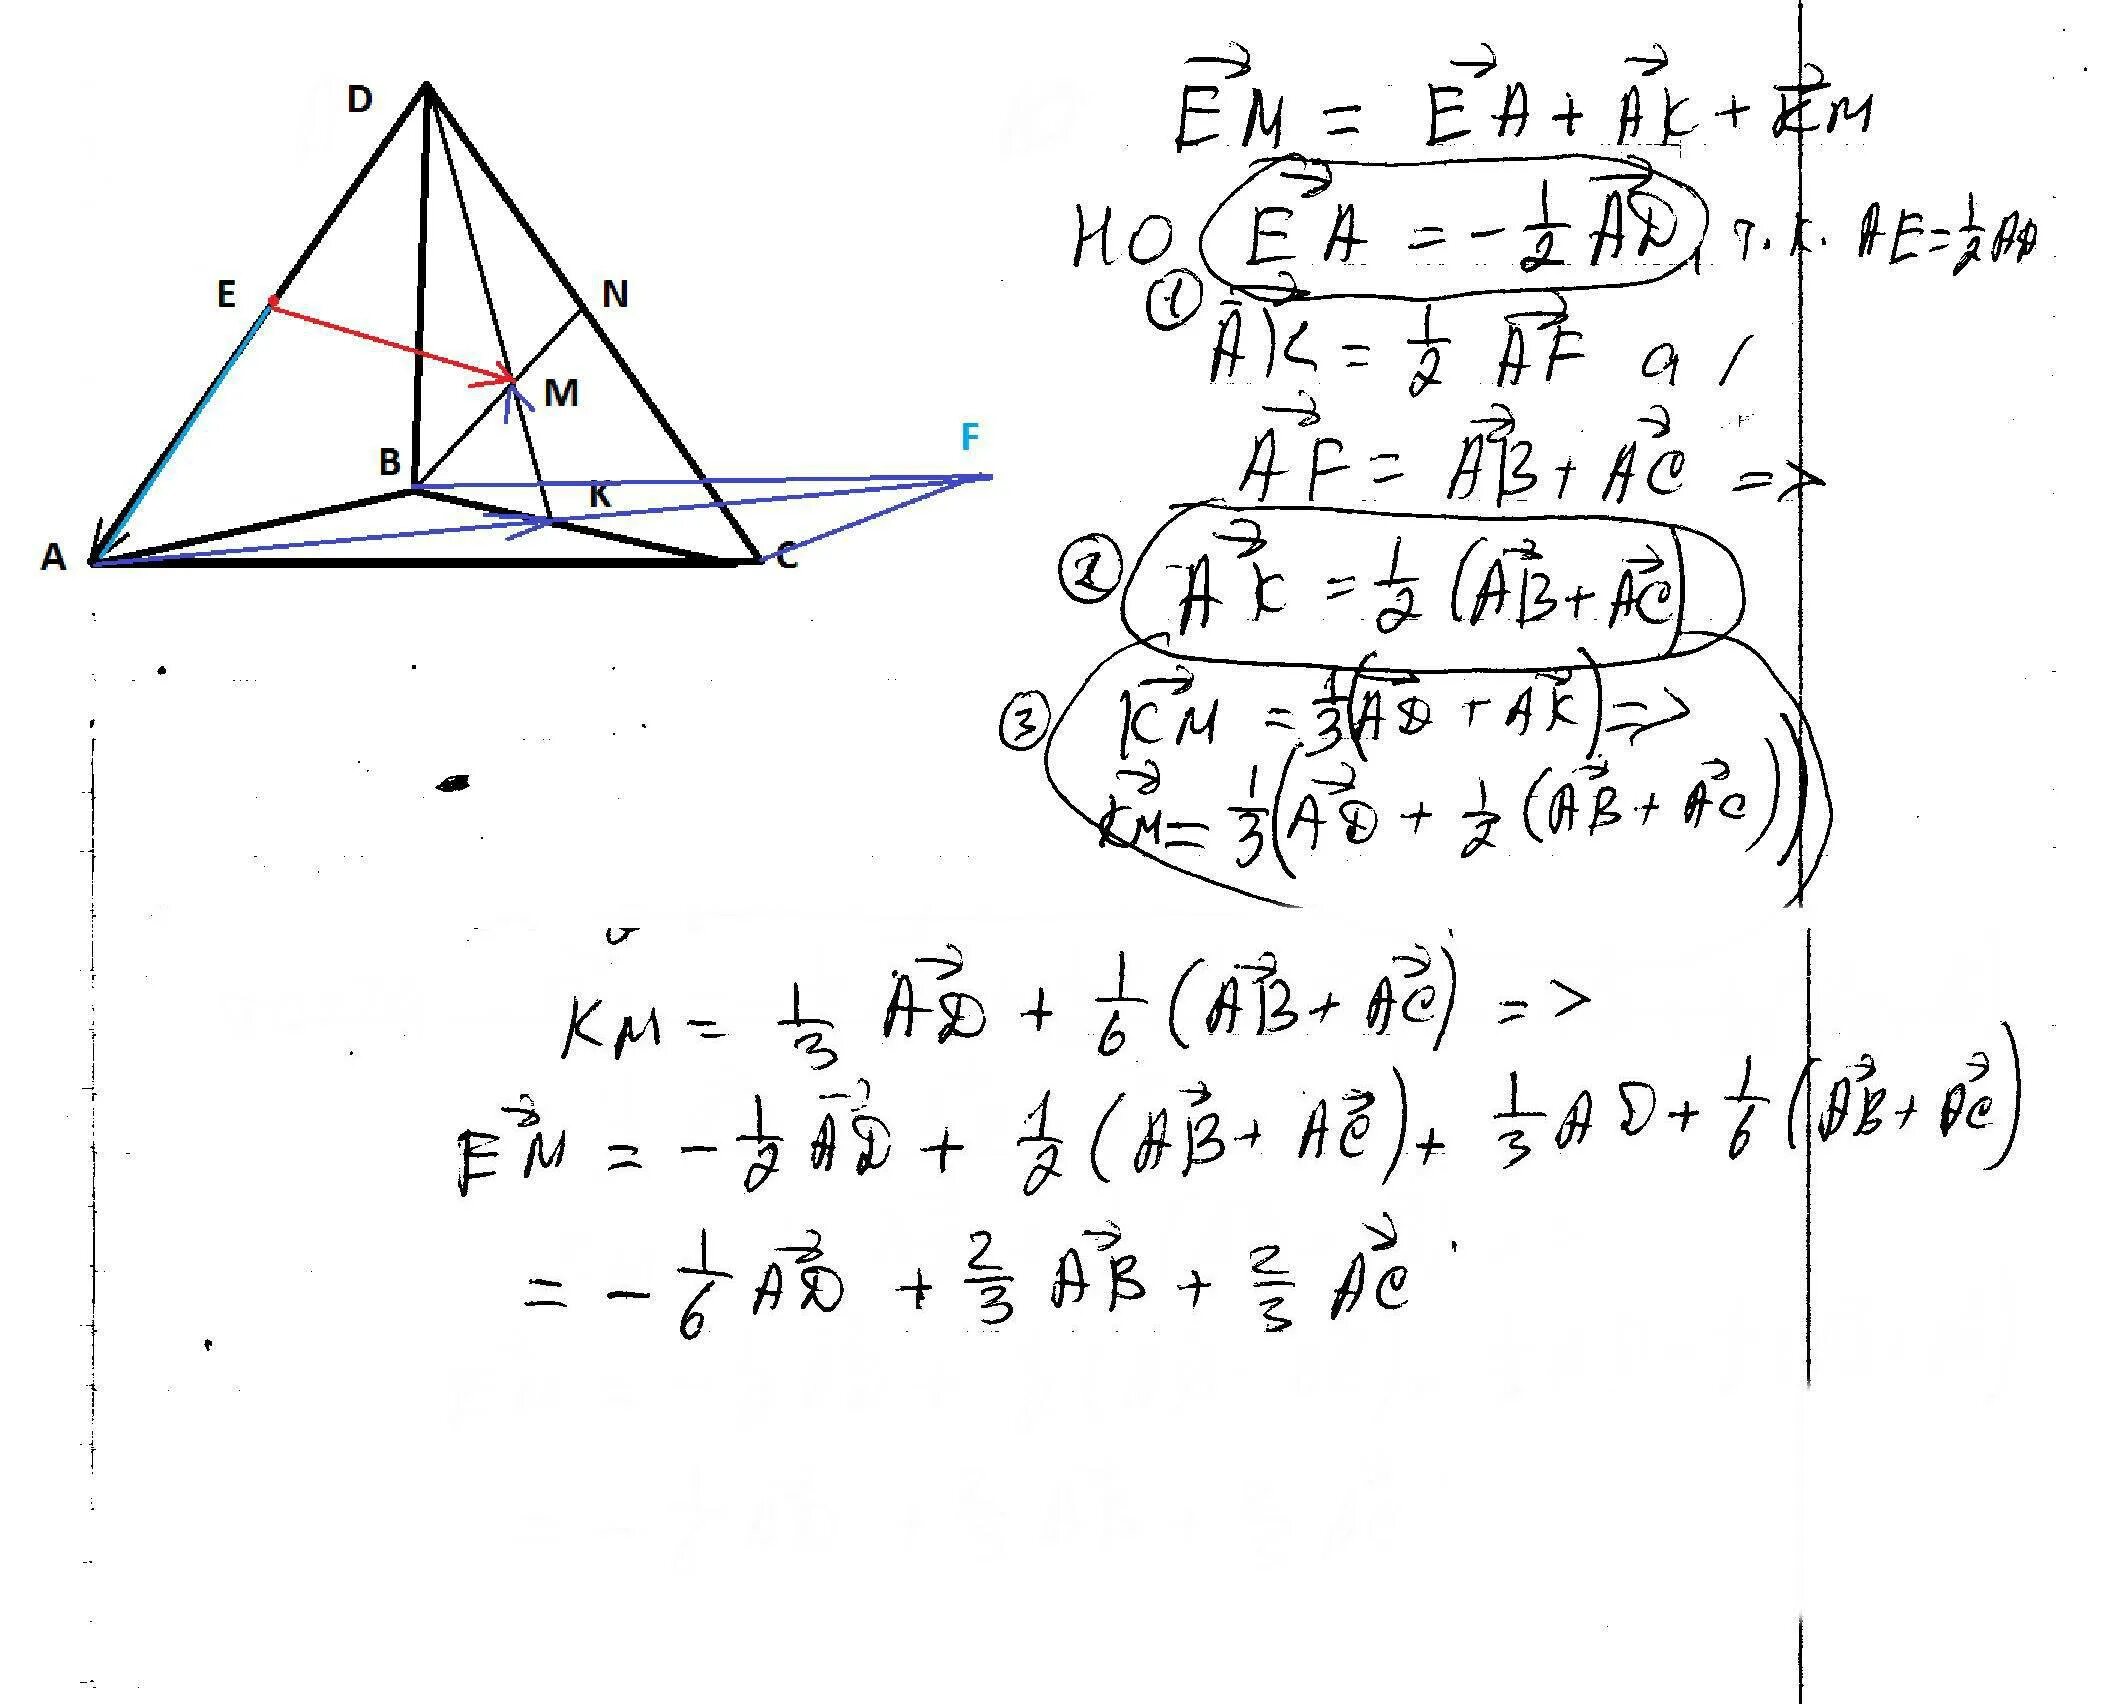 D
E
N
M
B
F
K
A
C
EM = EA + AK + KM
НО EA = -1/2 AD, т.к. AE = 1/2 AD
① AK = 1/2 AF а
AF = AB + AC =>
② AK = 1/2 (AB + AC)
③ KM = 1/3 (AD + AK) =>
KM = 1/3 (AD + 1/2 (AB + AC))
KM = 1/3 AD + 1/6 (AB + AC) =>
EM = -1/2 AD + 1/2 (AB + AC) + 1/3 AD + 1/6 (AB + AC)
= -1/6 AD + 2/3 AB + 2/3 AC